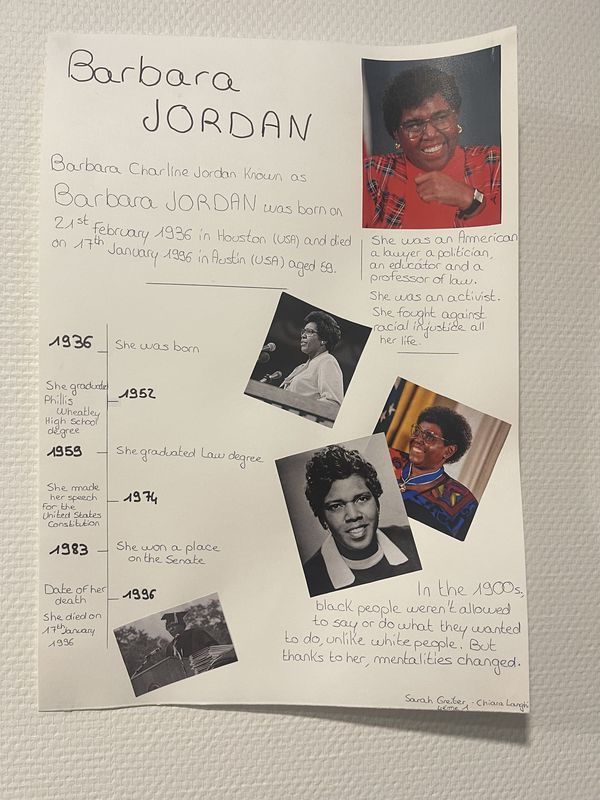 Barbara
JORDAN
Barbara Charline Jordan Known as
Barbara JORDAN was born on
21st February 1936 in Houston (USA) and died
on 17th January 1996 in Austin (USA) aged 59.
She was an American
a lawyer a politician,
an educator and a
professor of law.
She was an activist.
She fought against
racial injustice all
her life.
1936
She was born
She graduated
Phillis
Wheatley
High School
degree
1952
1959
She graduated Law degree
She made
her speech
For the
United States
Constitution
1974
1983
She won a place
on the Senate
Date of her
death
1996
She died on
17th January
1996
In the 1900s,
black people weren't allowed
to say or do what they wanted
to do, unlike white people. But
thanks to her, mentalities changed.
Sarah - Chiara